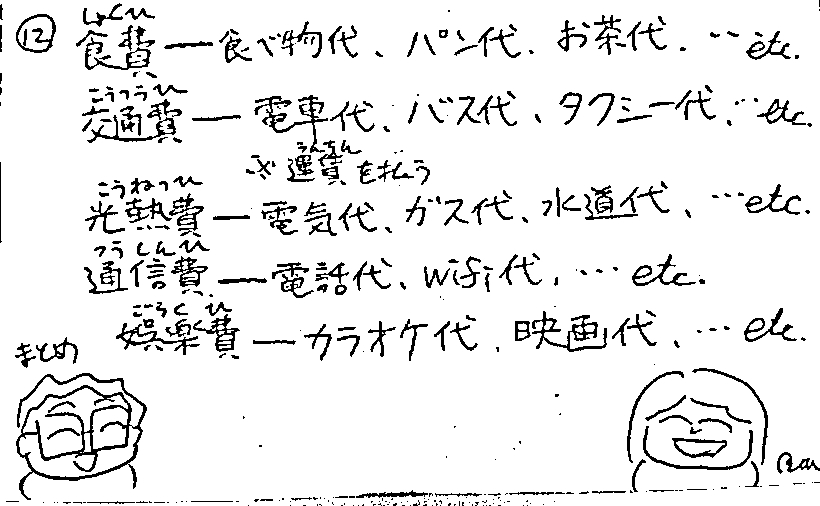 ⑫
しょくひ
食費 — 食べ物代、パン代、お茶代、… etc.
こうつうひ
交通費 — 電車代、バス代、タクシー代、… etc.
うんちん
※ 運賃を払う
こうねつひ
光熱費 — 電気代、ガス代、水道代、… etc.
つうしんひ
通信費 — 電話代、wifi代、… etc.
ごらくひ
娯楽費 — カラオケ代、映画代、… etc.
まとめ